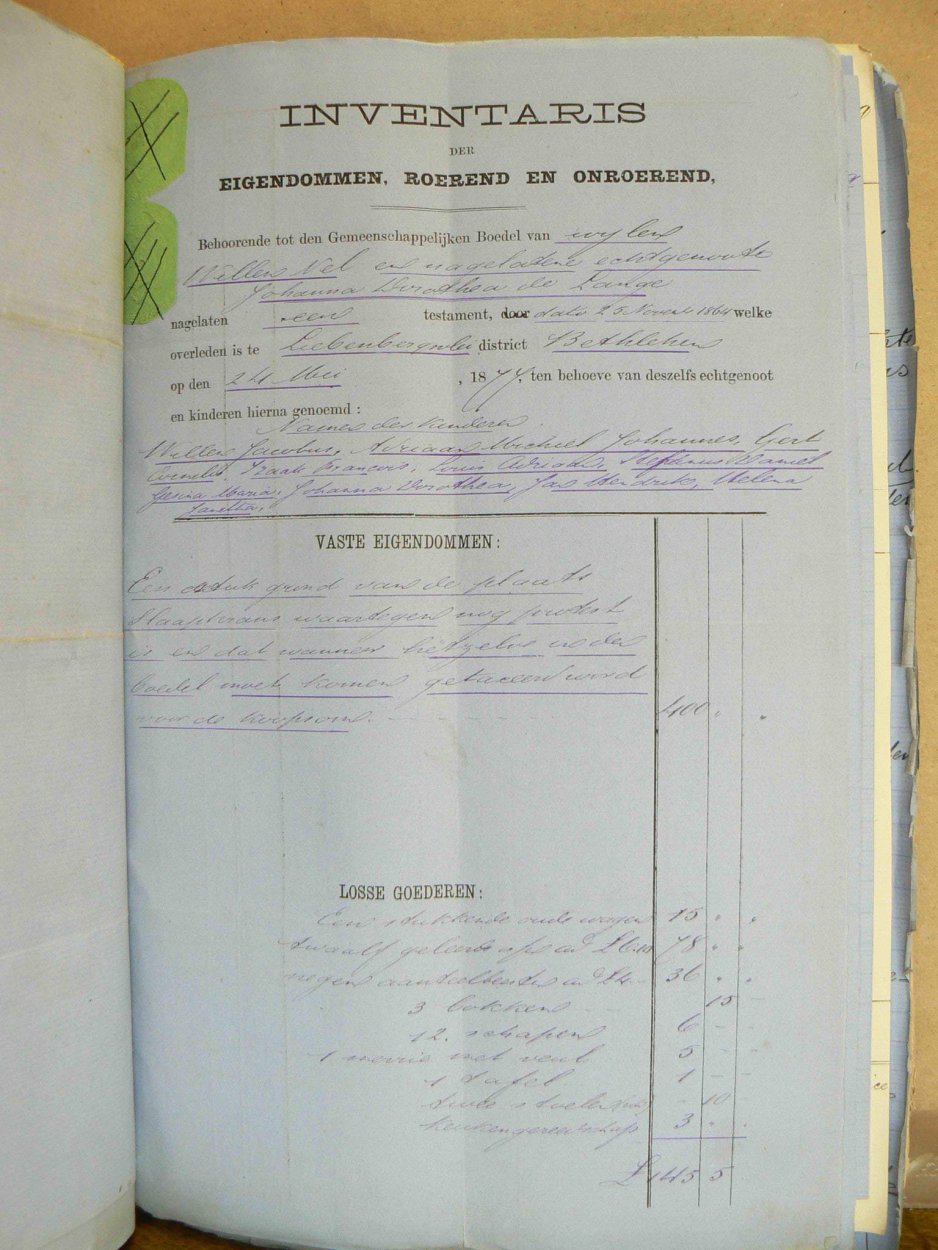 INVENTARIS
DER
EIGENDOMMEN, ROEREND EN ONROEREND,
Behoorende tot den Gemeenschappelijken Boedel van wylen
Willem Nel en nagelatene echtgenoote
Johanna Dorothea de Lange
nagelaten een testament, door dato 25 Novem 1864 welke
overleden is te Liebenbergsvlei district Bethlehem
op den 24 Mei , 1874, ten behoeve van deszelfs echtgenoot
en kinderen hierna genoemd :
Names des kinderen
Willem Jacobus, Adriaan Michiel Johannes, Gert
Cornelis, Izaak Francois, Louis Adriaan, Stefanus Daniel
Gesina Maria, Johanna Dorothea, Jan Hendrik, Helena
VASTE EIGENDOMMEN:
Een stuk grond van de plaats
Slaapkrans waartegen nog protest
is en dat wanneer hetzelve in den
boedel moet komen getaceerd word
voor de koopsom. 400 " "
LOSSE GOEDEREN:
Een stukkende oude wagen 15 " "
twaalf geleerde ossen ad £6.10 78 " "
negen aanteelbeesten ad £4 36 " "
3 bokken 15 -
12 schapen 6 - -
1 merrie met veul 5 - -
1 tafel 1 - -
twee stoelen - 10
keukengereedschap 3 " "
£145 5